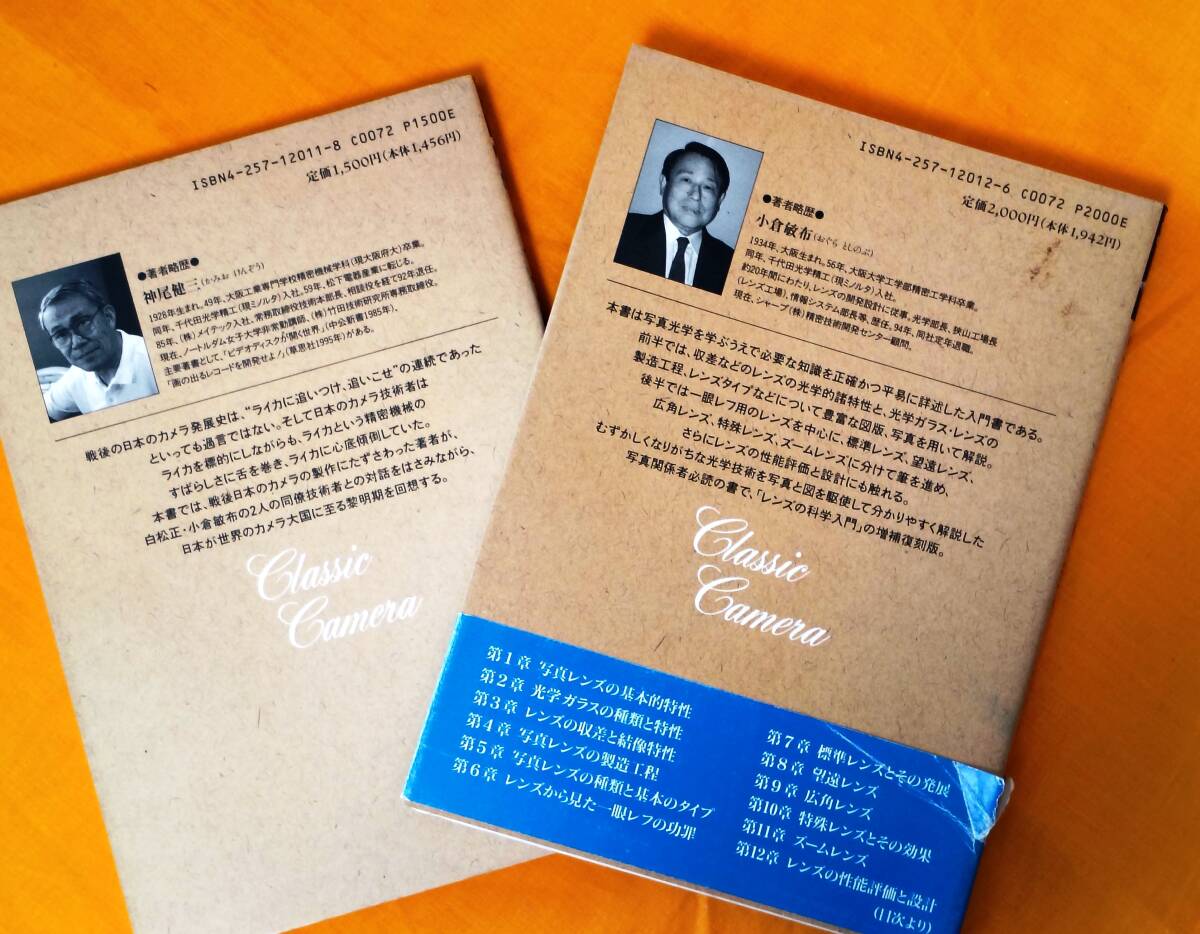 ISBN4-257-12011-8 C0072 P1500E
定価1,500円(本体1,456円)
●著者略歴●
神尾健三(かみお けんぞう)
1928年生まれ。49年、大阪工業専門学校精密機械学科(現大阪府大)卒業。
同年、千代田光学精工(現ミノルタ)入社。59年、松下電器産業に転じる。
85年、(株)メイテック入社、常務取締役技術本部長、相談役を経て92年退任。
現在、ノートルダム女子大学非常勤講師、(株)竹田技術研究所専務取締役。
主要著書として、「ビデオディスクが開く世界」(中公新書1985年)、
「画の出るレコードを開発せよ!」(草思社1995年)がある。
戦後の日本のカメラ発展史は、“ライカに追いつけ、追いこせ”の連続であった
といっても過言ではない。そして日本のカメラ技術者は
ライカを標的にしながらも、ライカという精密機械の
すばらしさに舌を巻き、ライカに心底傾倒していた。
本書では、戦後日本のカメラの製作にたずさわった著者が、
白松正・小倉敏布の2人の同僚技術者との対話をはさみながら、
日本が世界のカメラ大国に至る黎明期を回想する。
Classic
Camera
ISBN4-257-12012-6 C0072 P2000E
定価2,000円(本体1,942円)
●著者略歴●
小倉敏布(おぐら としのぶ)
1934年、大阪生まれ。56年、大阪大学工学部精密工学科卒業。
同年、千代田光学精工(現ミノルタ)入社。
約20年間にわたり、レンズの開発設計に従事。光学部長、狭山工場長
(レンズ工場)、情報システム部長等、歴任。94年、同社定年退職。
現在、シャープ(株)精密技術開発センター顧問。
本書は写真光学を学ぶうえで必要な知識を正確かつ平易に詳述した入門書である。
前半では、収差などのレンズの光学的諸特性と、光学ガラス・レンズの
製造工程、レンズタイプなどについて豊富な図版、写真を用いて解説。
後半では一眼レフ用のレンズを中心に、標準レンズ、望遠レンズ、
広角レンズ、特殊レンズ、ズームレンズに分けて筆を進め、
さらにレンズの性能評価と設計にも触れる。
むずかしくなりがちな光学技術を写真と図を駆使して分かりやすく解説した
写真関係者必読の書で、「レンズの科学入門」の増補復刻版。
Classic
Camera
第1章 写真レンズの基本的特性
第2章 光学ガラスの種類と特性
第3章 レンズの収差と結像特性
第4章 写真レンズの製造工程
第5章 写真レンズの種類と基本のタイプ
第6章 レンズから見た一眼レフの功罪
第7章 標準レンズとその発展
第8章 望遠レンズ
第9章 広角レンズ
第10章 特殊レンズとその効果
第11章 ズームレンズ
第12章 レンズの性能評価と設計
(目次より)